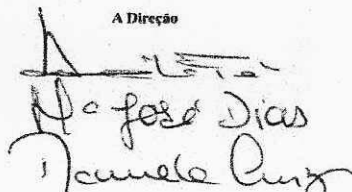 A Direção
Mª José Dias
Manuela Cruz